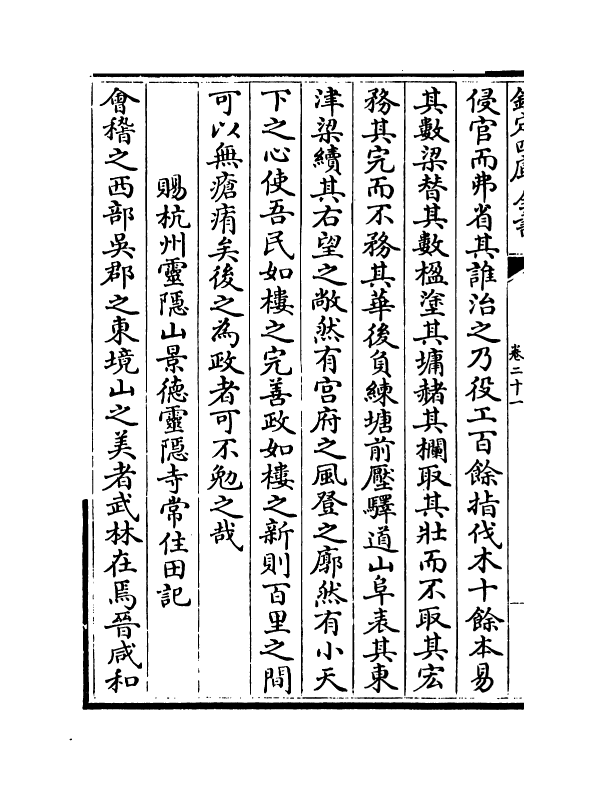 欽定四庫全書
卷二十一
侵官而弗省其誰治之乃役工百餘指伐木十餘本易
其數梁替其數楹塗其墉赭其欄取其壯而不取其宏
務其完而不務其華後負練塘前壓驛道山阜表其東
津梁續其右望之敞然有宫府之風登之廓然有小天
下之心使吾民如樓之完善政如樓之新則百里之間
可以無瘡痏矣後之為政者可不勉之哉
賜杭州靈隱山景徳靈隱寺常住田記
會稽之西部吳郡之東境山之美者武林在焉晉咸和